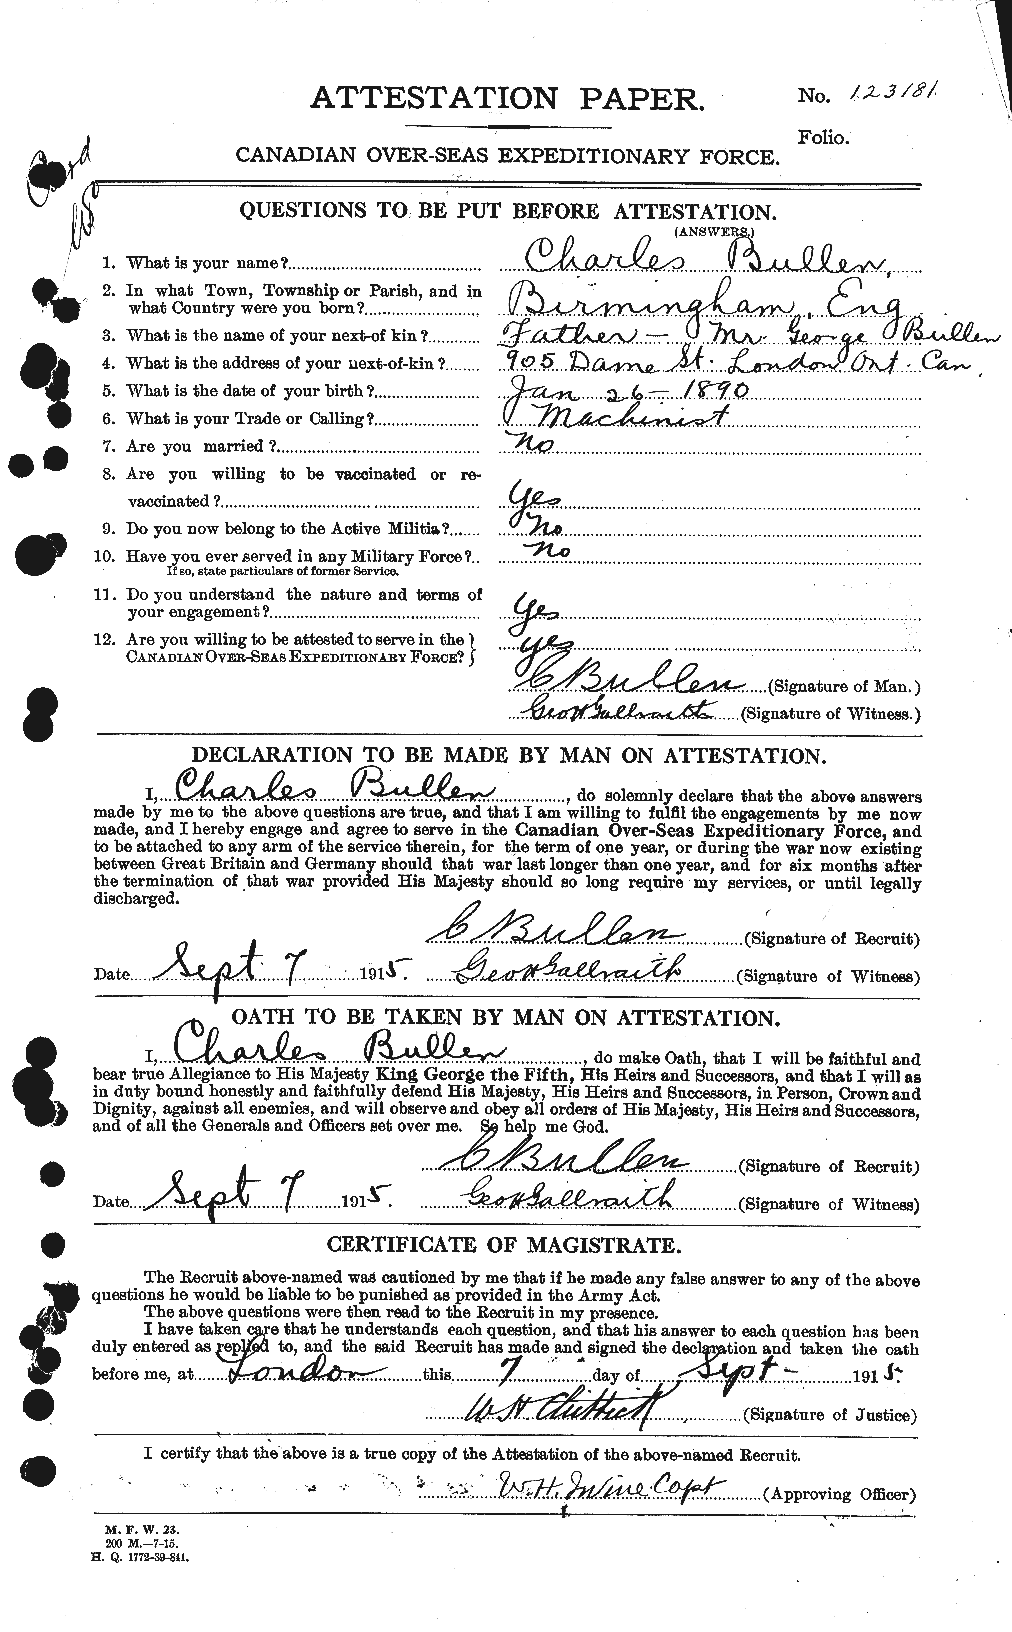 ATTESTATION PAPER.
No. 123181
Folio.
CANADIAN OVER-SEAS EXPEDITIONARY FORCE.
QUESTIONS TO BE PUT BEFORE ATTESTATION.
(ANSWERS.)
1. What is your name? Charles Bullen,
2. In what Town, Township or Parish, and in
what Country were you born? Birmingham, Eng
3. What is the name of your next-of kin? Father — Mr. George Bullen
4. What is the address of your next-of-kin? 905 Dame St. London Ont. Can.
5. What is the date of your birth? Jan 26 — 1890
6. What is your Trade or Calling? Machinist
7. Are you married? No
8. Are you willing to be vaccinated or re-
vaccinated? Yes
9. Do you now belong to the Active Militia? No
10. Have you ever served in any Military Force? No
If so, state particulars of former Service.
11. Do you understand the nature and terms of
your engagement? Yes
12. Are you willing to be attested to serve in the
CANADIAN OVER-SEAS EXPEDITIONARY FORCE? } yes
C Bullen (Signature of Man.)
Geo H Gallraith (Signature of Witness.)
DECLARATION TO BE MADE BY MAN ON ATTESTATION.
I, Charles Bullen, do solemnly declare that the above answers
made by me to the above questions are true, and that I am willing to fulfil the engagements by me now
made, and I hereby engage and agree to serve in the Canadian Over-Seas Expeditionary Force, and
to be attached to any arm of the service therein, for the term of one year, or during the war now existing
between Great Britain and Germany should that war last longer than one year, and for six months after
the termination of that war provided His Majesty should so long require my services, or until legally
discharged.
C Bullen (Signature of Recruit)
Date Sept 7 1915. Geo H Gallraith (Signature of Witness)
OATH TO BE TAKEN BY MAN ON ATTESTATION.
I, Charles Bullen, do make Oath, that I will be faithful and
bear true Allegiance to His Majesty King George the Fifth, His Heirs and Successors, and that I will as
in duty bound honestly and faithfully defend His Majesty, His Heirs and Successors, in Person, Crown and
Dignity, against all enemies, and will observe and obey all orders of His Majesty, His Heirs and Successors,
and of all the Generals and Officers set over me. So help me God.
C Bullen (Signature of Recruit)
Date Sept 7 1915. Geo H Gallraith (Signature of Witness)
CERTIFICATE OF MAGISTRATE.
The Recruit above-named was cautioned by me that if he made any false answer to any of the above
questions he would be liable to be punished as provided in the Army Act.
The above questions were then read to the Recruit in my presence.
I have taken care that he understands each question, and that his answer to each question has been
duly entered as replied to, and the said Recruit has made and signed the declaration and taken the oath
before me, at London this 7 day of Sept - 1915.
W H (Signature of Justice)
I certify that the above is a true copy of the Attestation of the above-named Recruit.
W. H. Capt (Approving Officer)
M. F. W. 23.
200 M.—7-15.
H. Q. 1772-39-841.